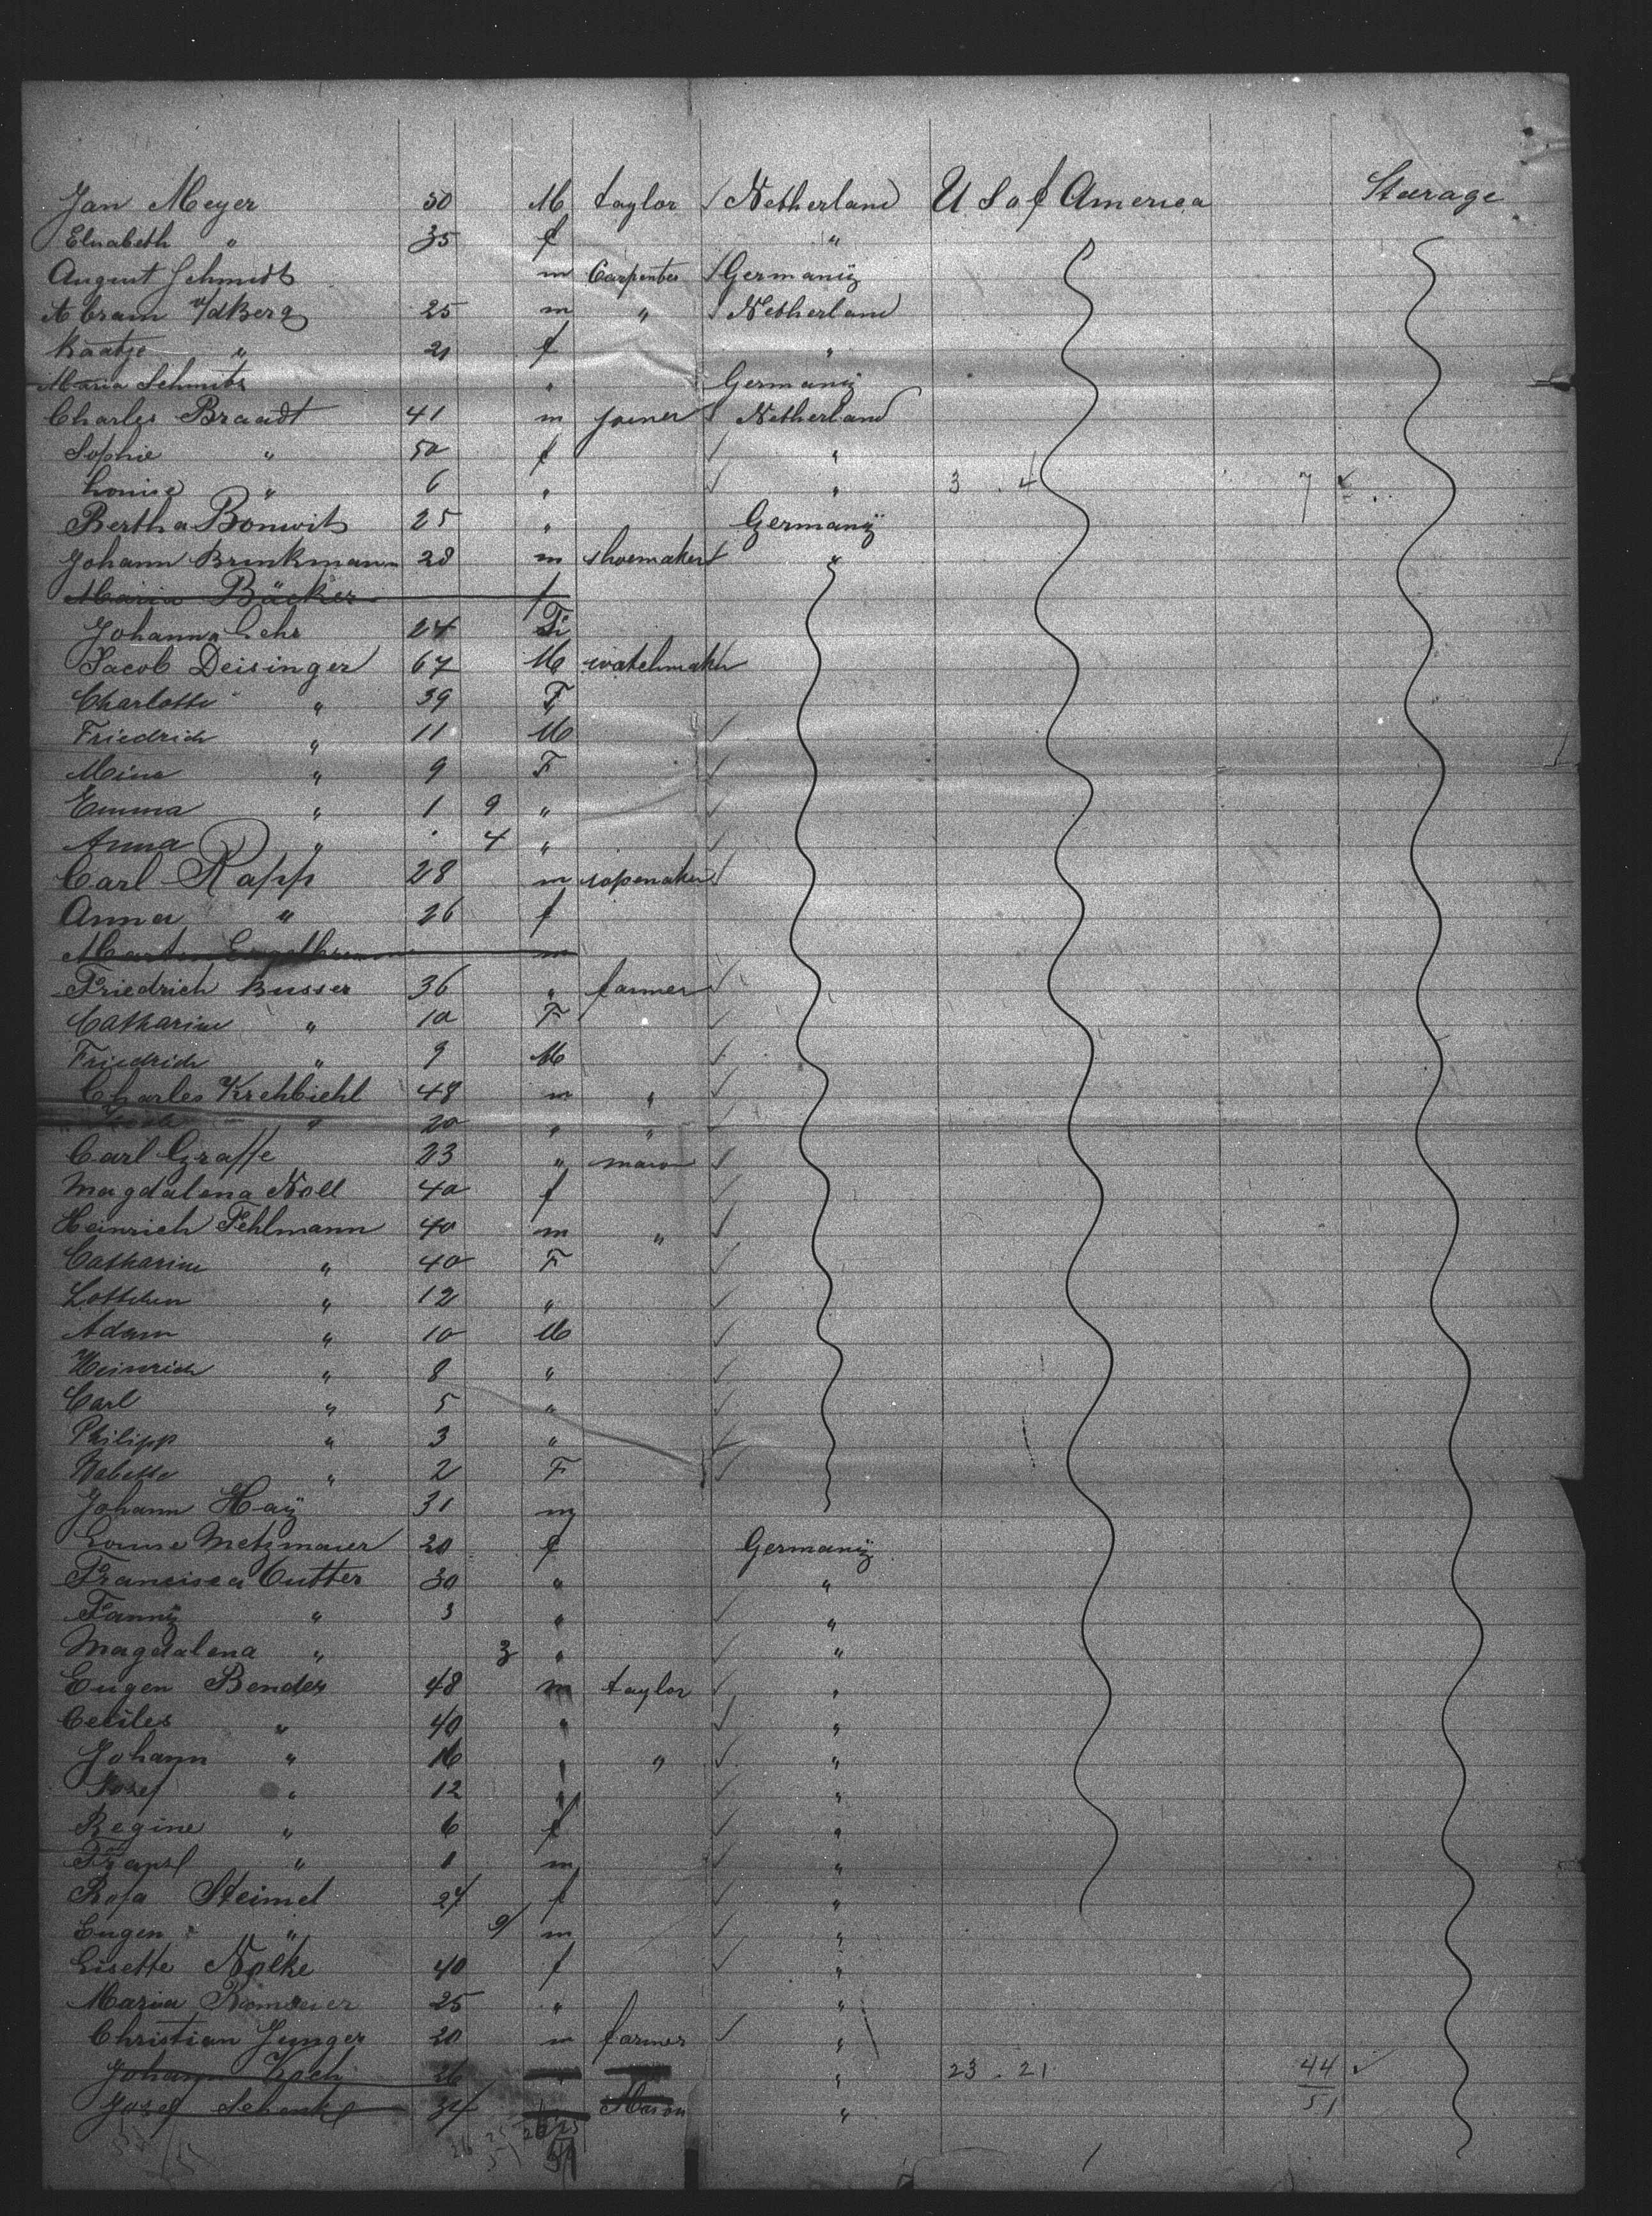 Jan Meyer 30 M taylor ✓ Netherland U S of America Stearage
Elisabeth " 35 f "
August Schmidt m Carpenter ✓ Germany
Abram v/d Berg 25 m " ✓ Netherland
Kaatje " 21 f "
Maria Schmitz " Germany
Charles Braadt 41 m joiner ✓ Netherland
Sophie " 50 f ✓ "
Louise " 6 " ✓ " 3 . 4 7 ✓
Bertha Bonwit 25 " Germany
Johann Brinkmann 28 m shoemaker ✓ "
Maria Bäcker f
Johanna Lehr 24 F
Jacob Deisinger 67 M watchmaker
Charlotte " 39 F
Friedrich " 11 M ✓
Mina " 9 F ✓
Emma " 1 9 " ✓
Anna " . 4 " ✓
Carl Rapp 28 m ropemaker ✓
Anna " 26 f
Martin m
Friedrich Busser 36 " farmer ✓
Catharine " 10 F ✓
Friedrich " 9 M ✓
Charles Krehbiehl 48 m " ✓
" 20 " " ✓
Carl Graffe 23 " mason ✓
Magdalena Noll 40 f ✓
Heinrich Fehlmann 40 m " ✓
Catharine " 40 F ✓
Lottchen " 12 " ✓
Adam " 10 M ✓
Heinrich " 8 " ✓
Carl " 5 " ✓
Philipp " 3 " ✓
Babette " 2 F ✓
Johann Haÿ 31 m
Louise Metzmaier 20 f Germany
Francisca Cutter 30 " "
Fannÿ " 3 " ✓ "
Magdalena " 3 " ✓ "
Eugen Bender 48 m taylor ✓ "
Ceciles " 40 " ✓ "
Johann " 16 " " ✓ "
Josef " 12 " ✓ "
Regine " 6 f ✓ "
Franz " 1 m ✓ "
Rosa Steimel 24 f ✓ "
Eugen " 9/ m ✓ "
Lisette Nolke 40 f ✓ "
Maria 25 " "
Christian Junger 20 m farmer ✓ "
Johann Koch 26 " 23 . 21 44 ✓
Josef Schenkel 34 Mason " 51